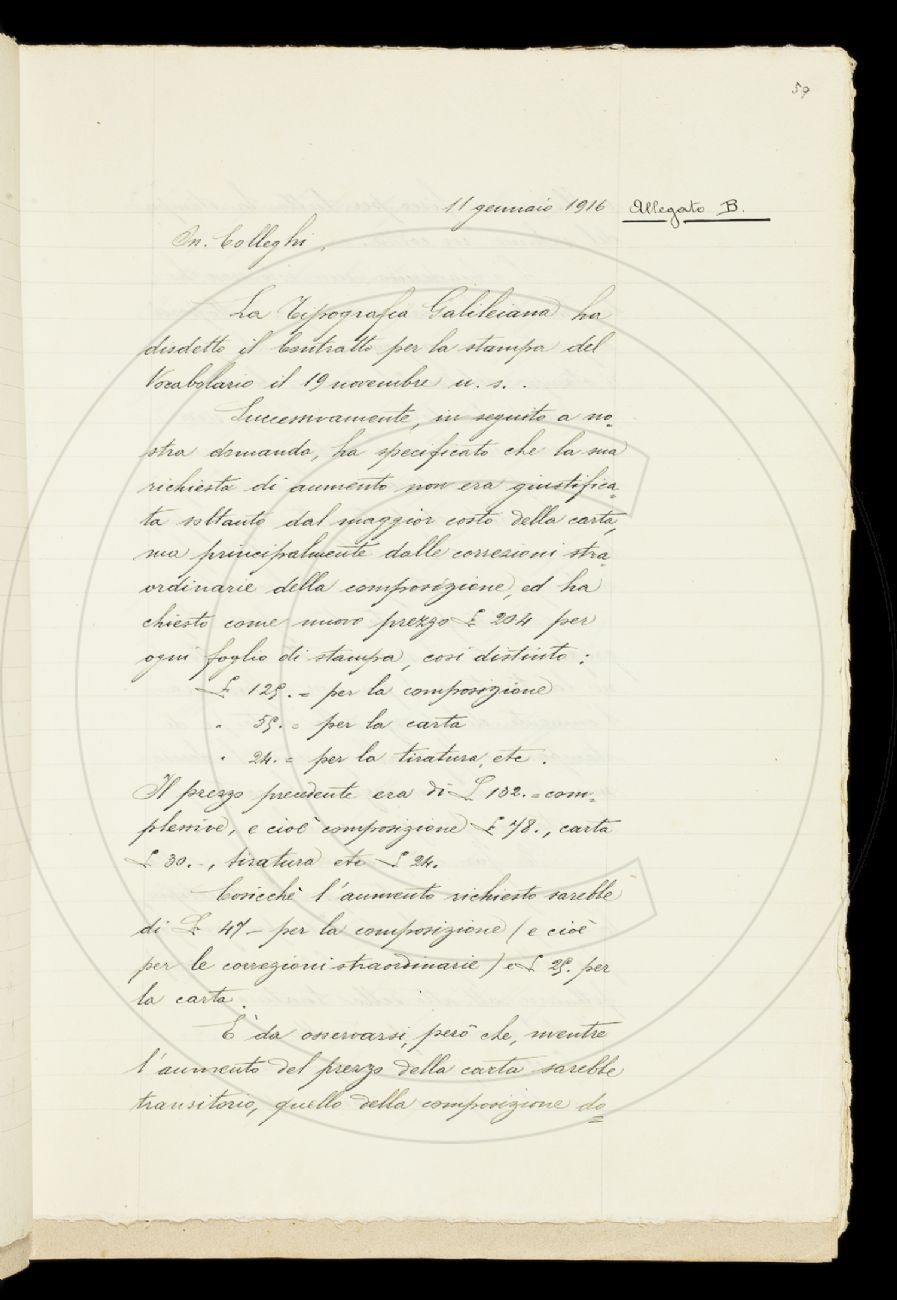 59
11 gennaio 1916 Allegato B.
On. Colleghi,
La Tipografia Galileiana ha
disdetto il Contratto per la stampa del
Vocabolario il 19 novembre u. s..
Successivamente, in seguito a no=
stra domanda, ha specificato che la sua
richiesta di aumento non era giustifica=
ta soltanto dal maggior costo della carta,
ma principalmente dalle correzioni stra=
ordinarie della composizione, ed ha
chiesto come nuovo prezzo £ 204 per
ogni foglio di stampa, così distinto:
£ 125.= per la composizione
" 55.= per la carta
" 24.= per la tiratura, etc.
Il prezzo precedente era di £ 132.= com=
plessive, e cioè composizione £ 78., carta
£ 30.-, tiratura etc £ 24.
Cosicchè l'aumento richiesto sarebbe
di £ 47- per la composizione (e cioè
per le correzioni straordinarie) e £ 25. per
la carta.
È da osservarsi, però che, mentre
l'aumento del prezzo della carta sarebbe
transitorio, quello della composizione do=